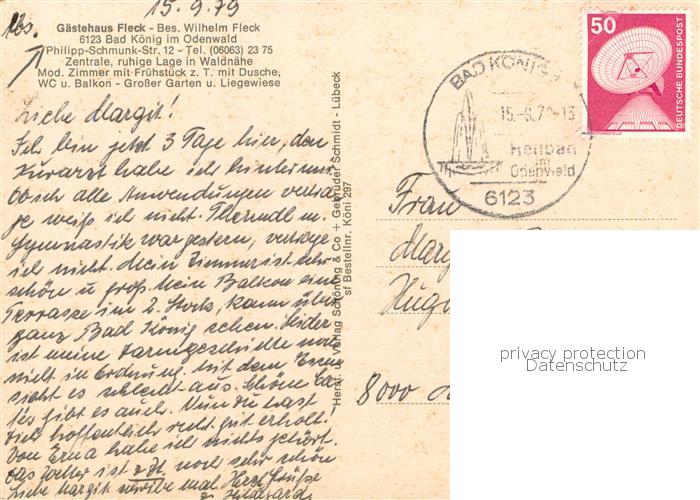 15.9.79
Abs.
Gästehaus Fleck - Bes. Wilhelm Fleck
6123 Bad König im Odenwald
Philipp-Schmunk-Str. 12 - Tel. (06063) 23 75
Zentrale, ruhige Lage in Waldnähe
Mod. Zimmer mit Frühstück z. T. mit Dusche,
WC u. Balkon - Großer Garten u. Liegewiese
Liebe Margit!
Ich bin jetzt 3 Tage hier, den
Kurarzt habe ich hinter mir
Ob ich alle Anwendungen vertra-
ge weiß ich nicht. Thermal u.
Gymnastik war gestern, vertrage
ich nicht. Mein Zimmer ist sehr
schön u. groß. Mein Balkon eine
Terrasse im 2. Stock, kann über
ganz Bad König sehen. Leider
ist meine Darmgeschichte noch
nicht in Ordnung. Mit dem Essen
sieht es schlecht aus. Schöne Ca-
fes gibt es auch. Nun du hast
dich hoffentlich recht gut erholt.
Von Erna habe ich nichts gehört.
Das Wetter ist z. Zt. noch sehr schön
Liebe Margit schreibe mal. Herzl. Grüße
Herst. u. Verlag Schöning & Co + Gebrüder Schmidt - Lübeck
sf Bestellnr. Köni 297
50
DEUTSCHE BUNDESPOST
BAD KÖNIG
15.-9.79-13
Heilbad
im
Odenwald
6123
Frau
Hugo
8000
privacy protection
Datenschutz